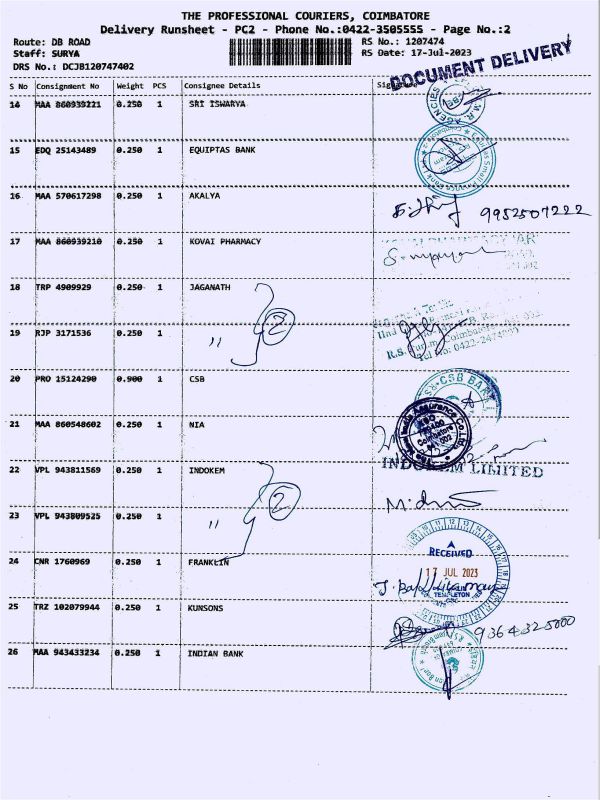 THE PROFESSIONAL COURIERS, COIMBATORE
Delivery Runsheet - PC2 - Phone No.:0422-3505555 - Page No.:2
Route: DB ROAD RS No.: 1207474
Staff: SURYA RS Date: 17-Jul-2023
DRS No.: DCJB120747402
DOCUMENT DELIVERY
S No Consignment No Weight PCS Consignee Details
14 MAA 860939221 0.250 1 SRI ISWARYA
15 EDQ 25143489 0.250 1 EQUIPTAS BANK
16 MAA 570617298 0.250 1 AKALYA 9952507222
17 MAA 860939210 0.250 1 KOVAI PHARMACY
18 TRP 4909929 0.250 1 JAGANATH
19 RJP 3171536 0.250 1 " 2
R.S. Puram, Coimbatore
Tel No: 0422-2474
20 PRO 15124290 0.900 1 CSB
CSB BANK
21 MAA 860548602 0.250 1 NIA
Coimbatore
INDOKEM LIMITED
22 VPL 943811569 0.250 1 INDOKEM
23 VPL 943809525 0.250 1 " 2
RECEIVED
24 CNR 1760969 0.250 1 FRANKLIN
17 JUL 2023
TEMPLETON
25 TRZ 102079944 0.250 1 KUNSONS
26 MAA 943433234 0.250 1 INDIAN BANK